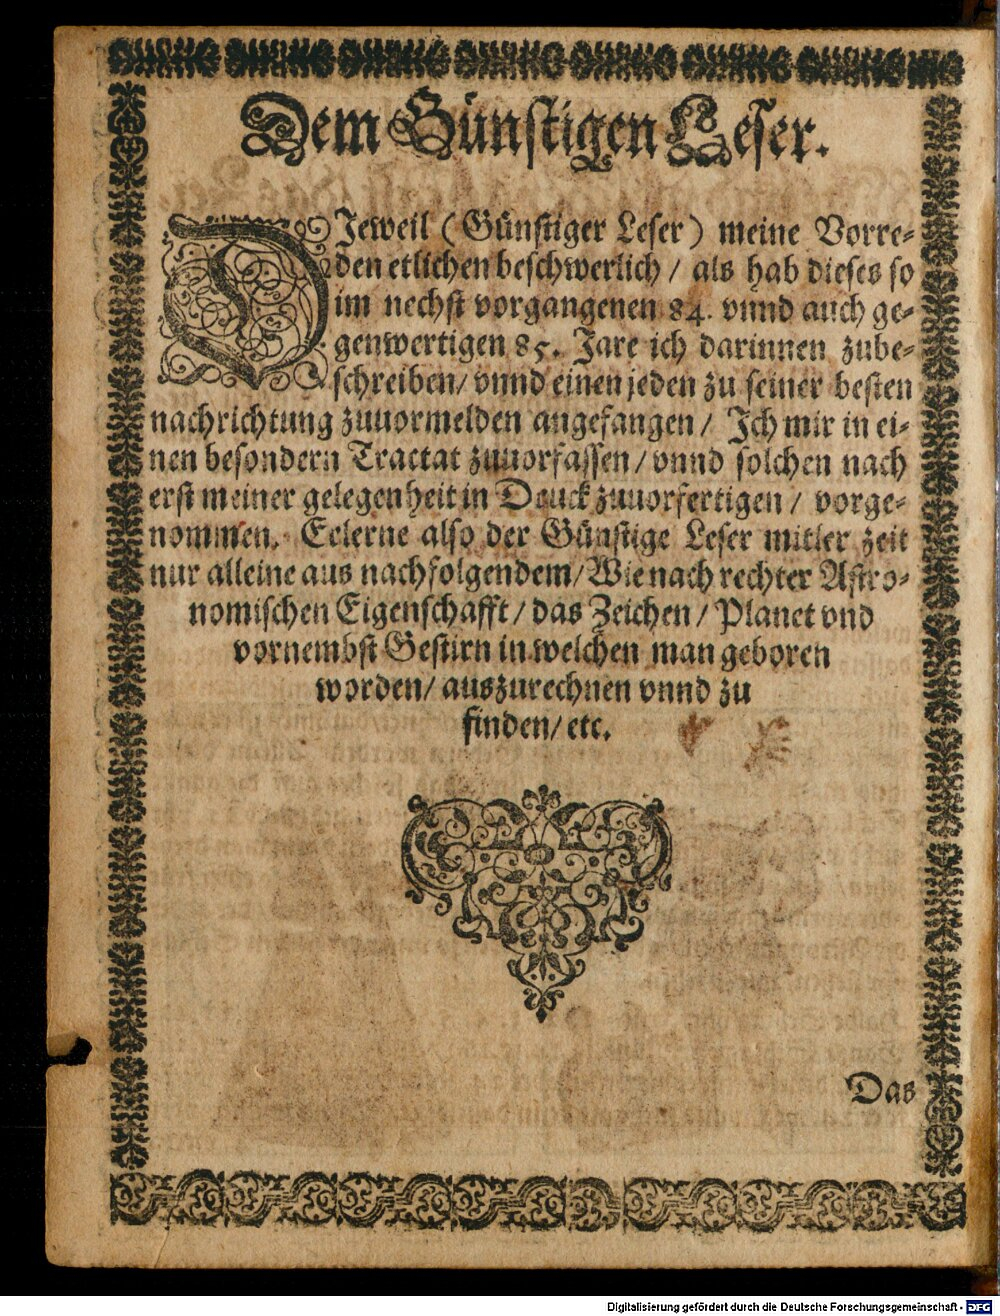 Dem Günstigen Leser.
DJeweil (Günstiger Leser) meine Vorre-
den etlichen beschwerlich / als hab dieses so
im nechst vorgangenen 84. vnnd auch ge-
genwertigen 85. Jare ich darinnen zube-
schreiben / vnnd einen jeden zu seiner besten
nachrichtung zuuormelden angefangen / Ich mir in ei-
nen besondern Tractat zuuorfassen / vnnd solchen nach
erst meiner gelegenheit in Druck zuuorfertigen / vorge-
nommen. Erlerne also der Günstige Leser mitler zeit
nur alleine aus nachfolgendem / Wie nach rechter Astro-
nomischen Eigenschafft / das Zeichen / Planet vnd
vornembst Gestirn in welchen man geboren
worden / auszurechnen vnnd zu
finden / etc.
Das
Digitalisierung gefördert durch die Deutsche Forschungsgemeinschaft - DFG